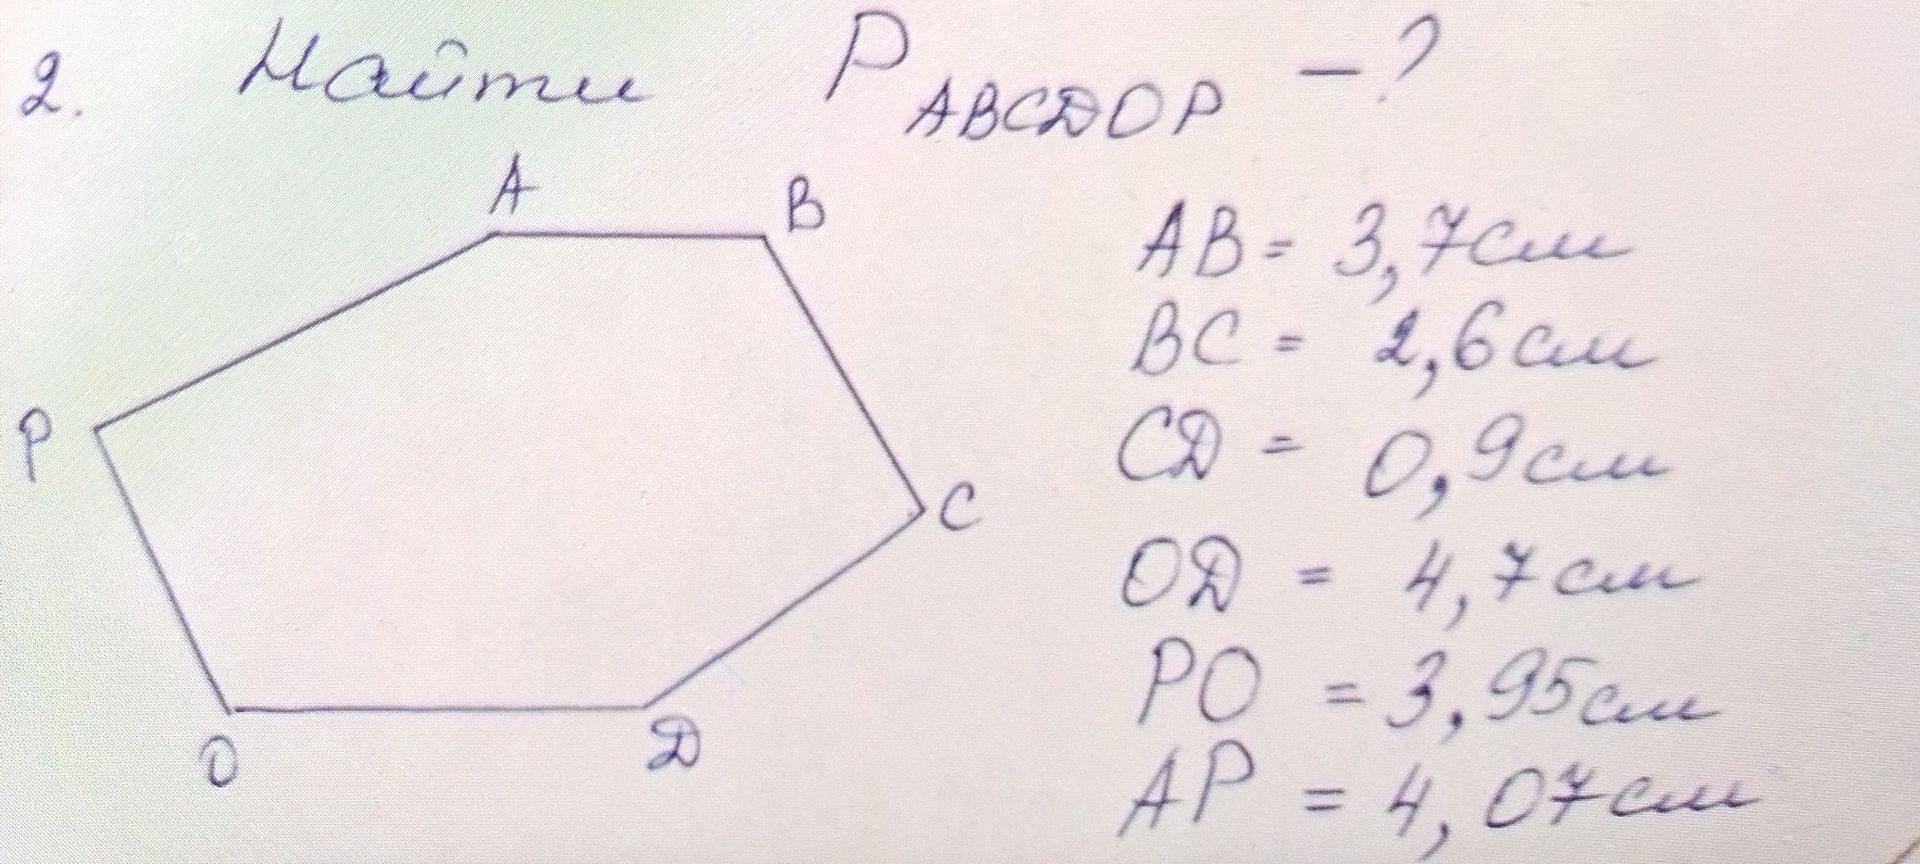 2. Найти P ABCDOP - ?
A
B
AB = 3,7см
BC = 2,6см
P
CD = 0,9см
C
OD = 4,7см
PO = 3,95см
O
D
AP = 4,07см